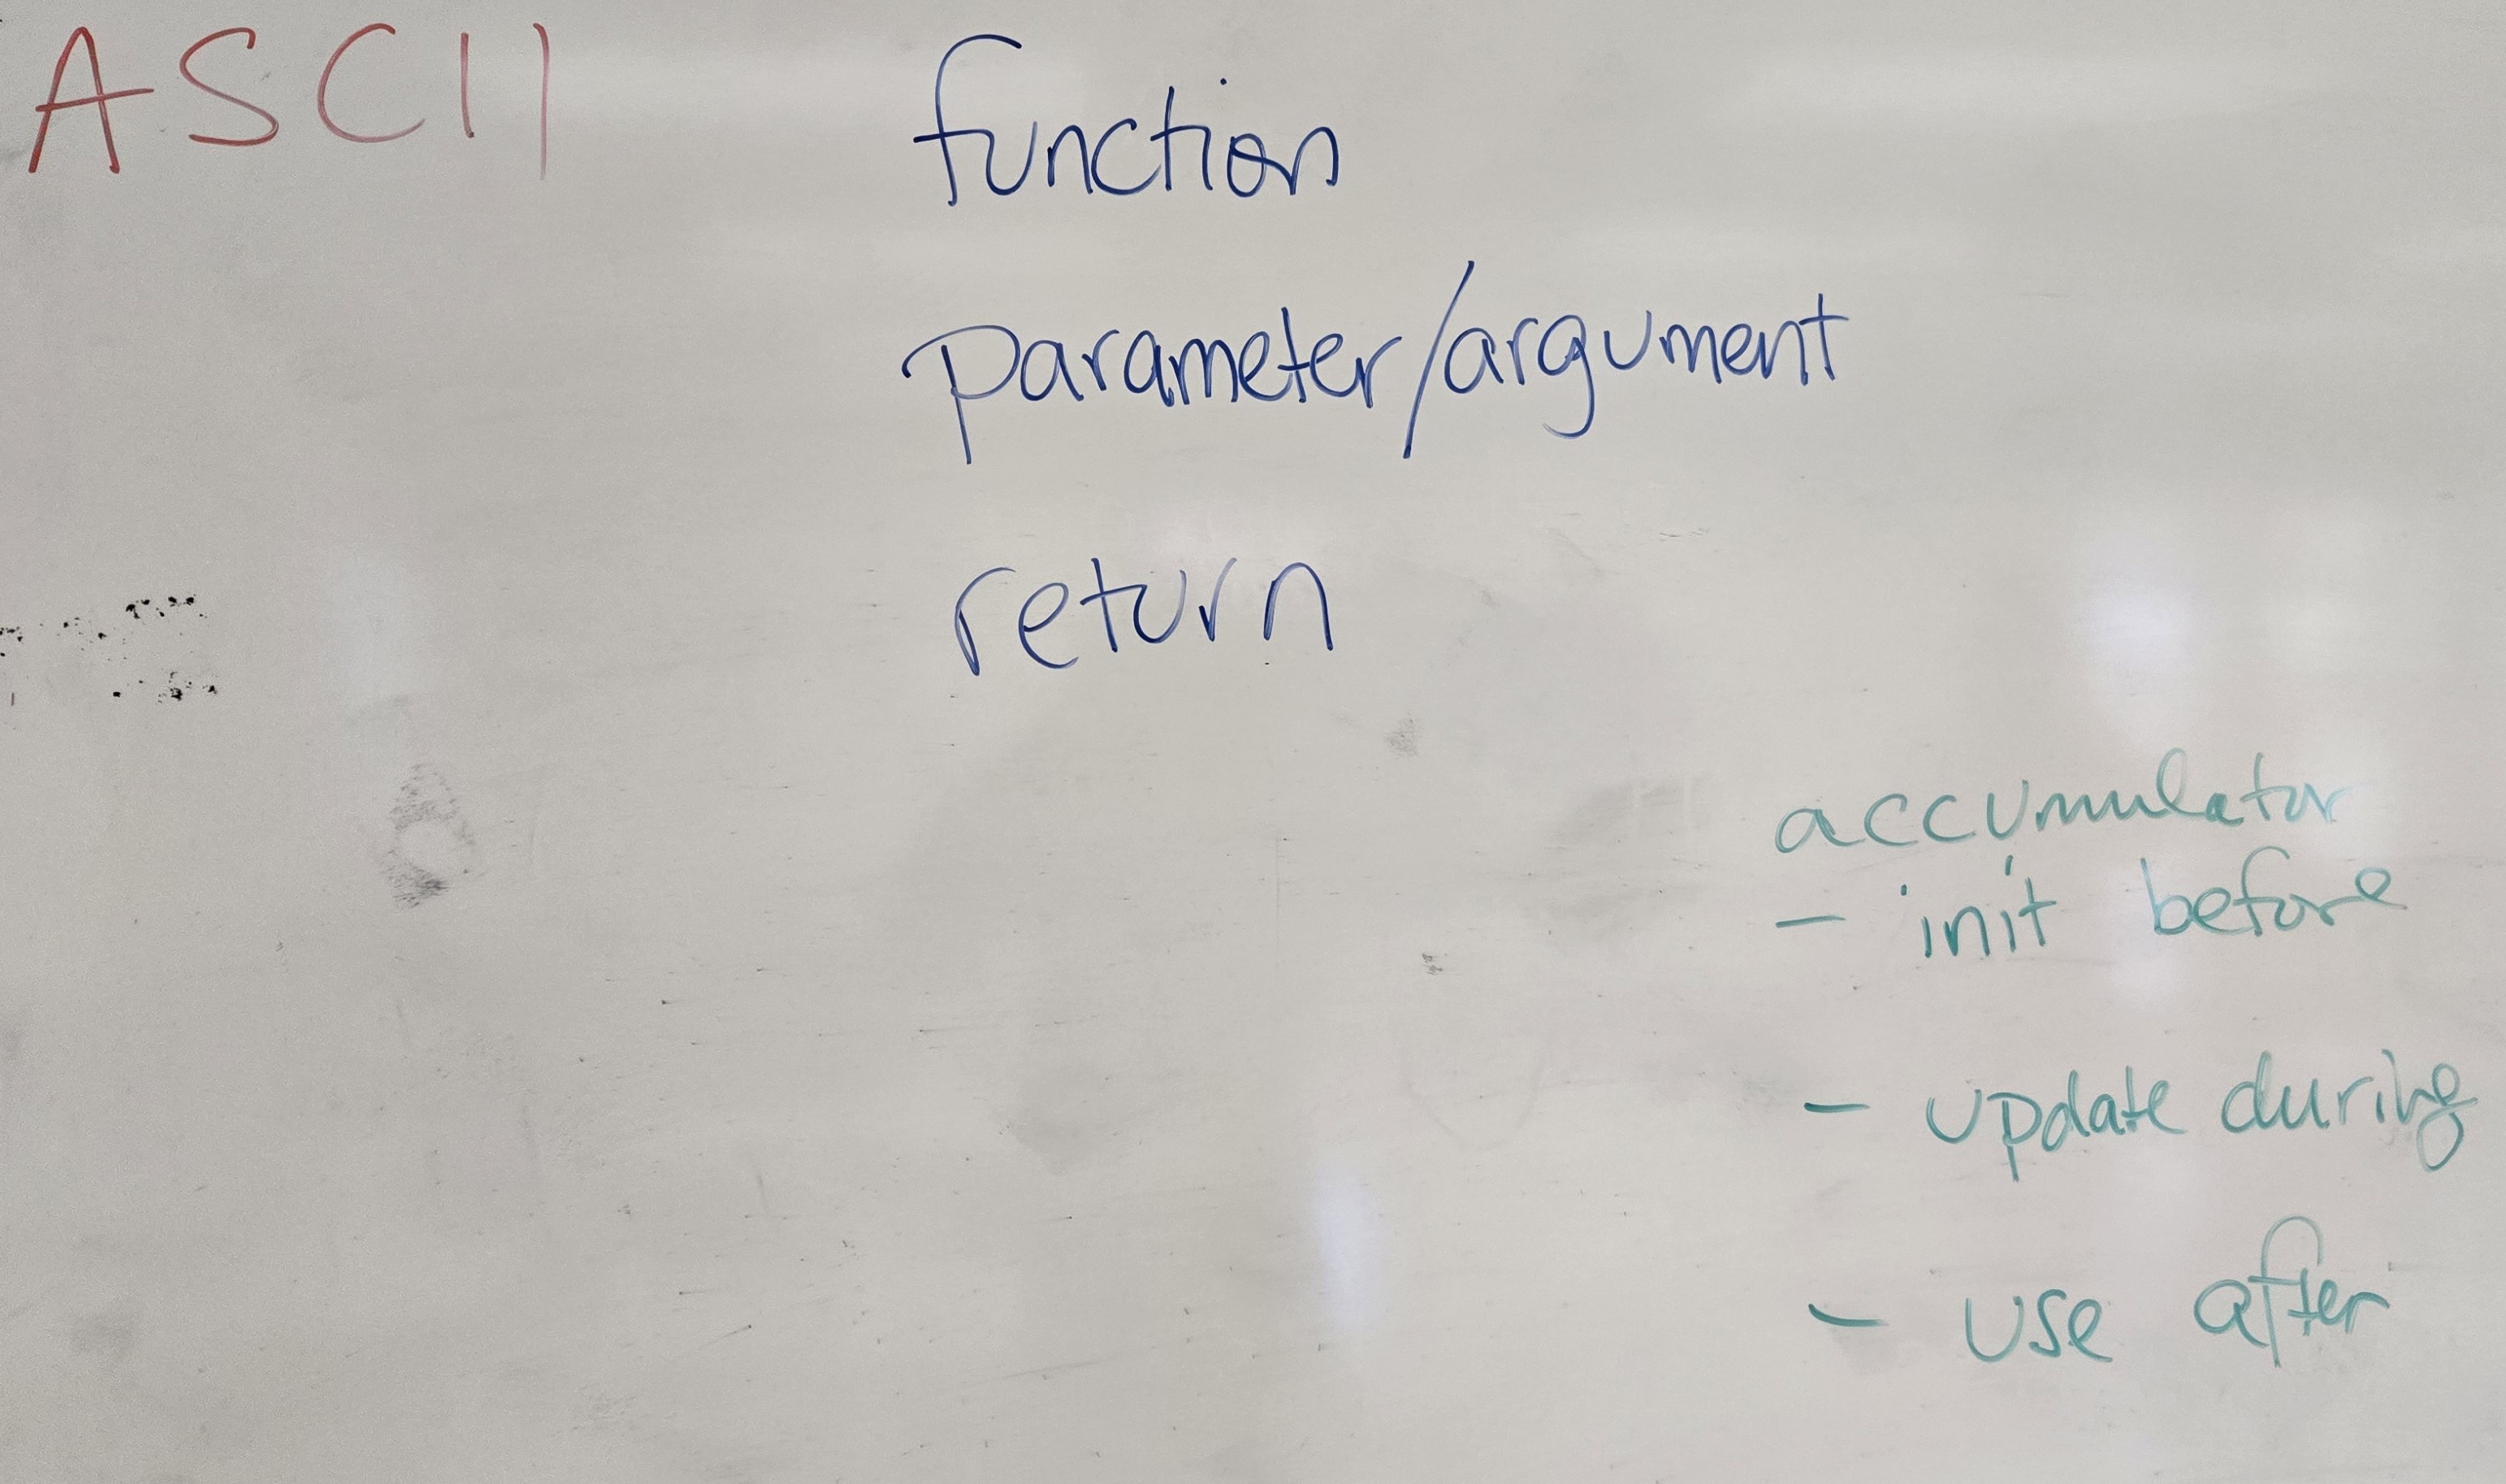 ASCII
function
parameter/argument
return
accumulator
- init before
- update during
- use after